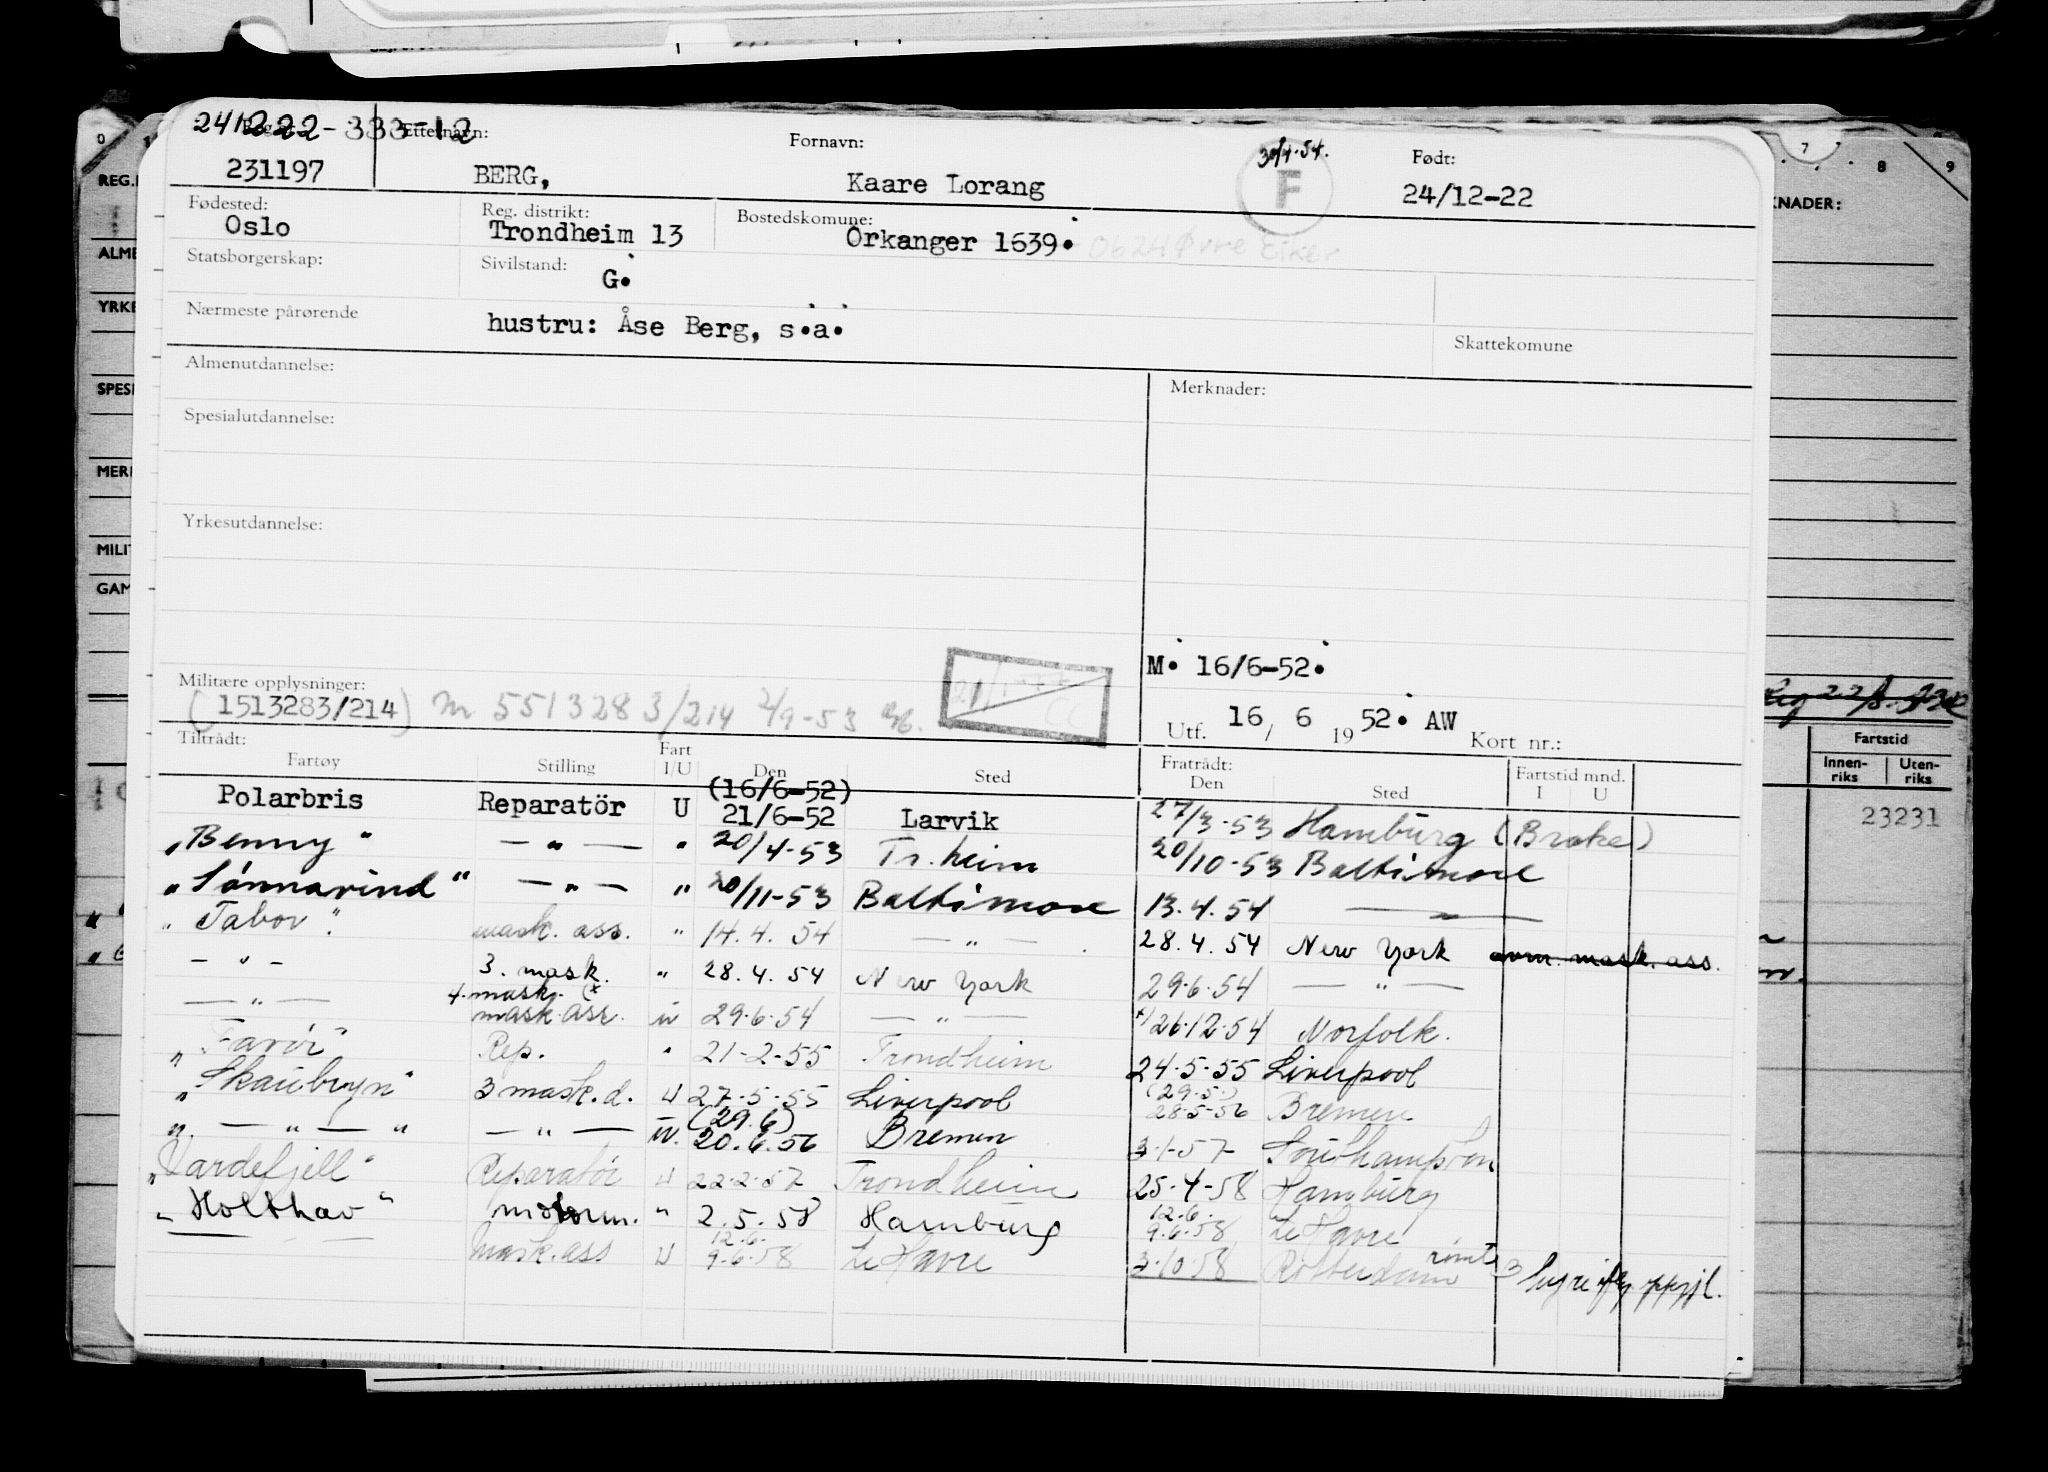 241222-333-12
Reg. nr. Etternavn: Fornavn: 30/4-54. Født:
231197 BERG, Kaare Lorang F 24/12-22
Fødested: Reg. distrikt: Bostedskomune:
Oslo Trondheim 13 Orkanger 1639. 0624 Øvre Eiker
Statsborgerskap: Sivilstand:
G.
Nærmeste pårørende hustru: Åse Berg, s.a.
Skattekomune
Almenutdannelse: Merknader:
Spesialutdannelse:
Yrkesutdannelse:
M. 16/6-52.
Militære opplysninger:
(1513283/214) M 5513283/214 2/9-53
Utf. 16/ 6 1952. AW Kort nr.:
Tiltrådt: Fratrådt:
Fartøy Stilling Fart I/U Den Sted Den Sted Fartstid mnd. I U
(16/6-52)
Polarbris Reparatör U 21/6-52 Larvik 27/3-53 Hamburg (Brake)
"Benny" — " — " 20/4-53 Tr.heim 20/10-53 Baltimore
"Sønnavind" — " — " 20/11-53 Baltimore 13.4.54 — " —
"Tabor" mask. ass. " 14.4.54 — " — 28.4.54 New York avm. mask. ass.
— " — 3. mask. " 28.4.54 New York 29.6.54 — " —
4. mask. (x
— " — mask. ass. u 29.6.54 — " — x) 26.12.54 Norfolk.
"Favör" Rep. " 21-2-55 Trondheim 24-5-55 Liverpool
(29.5.)
"Skaubryn" 3 mask.d. U 27-5-55 Liverpool 28-5-56 Bremen
(29.6)
" — " — " — " — u. 20.6.56 Bremen 3-1-57 Southampton
"Vardefjell" Reparatör U 22-2-57 Trondheim 25-4-58 Hamburg
12.6.
"Holthav" motorm. " 2.5.58 Hamburg 9.6.58 Le Havre
12.6.
— — Mask.ass U 9.6.58 Le Havre 3-10 58 Rotterdam rømt
0 7 8 9
REG.
ALME
YRKE
SPESI
MERI
MILI
GAM
KNADER:
Fartstid
Innen-riks Uten-riks
23231